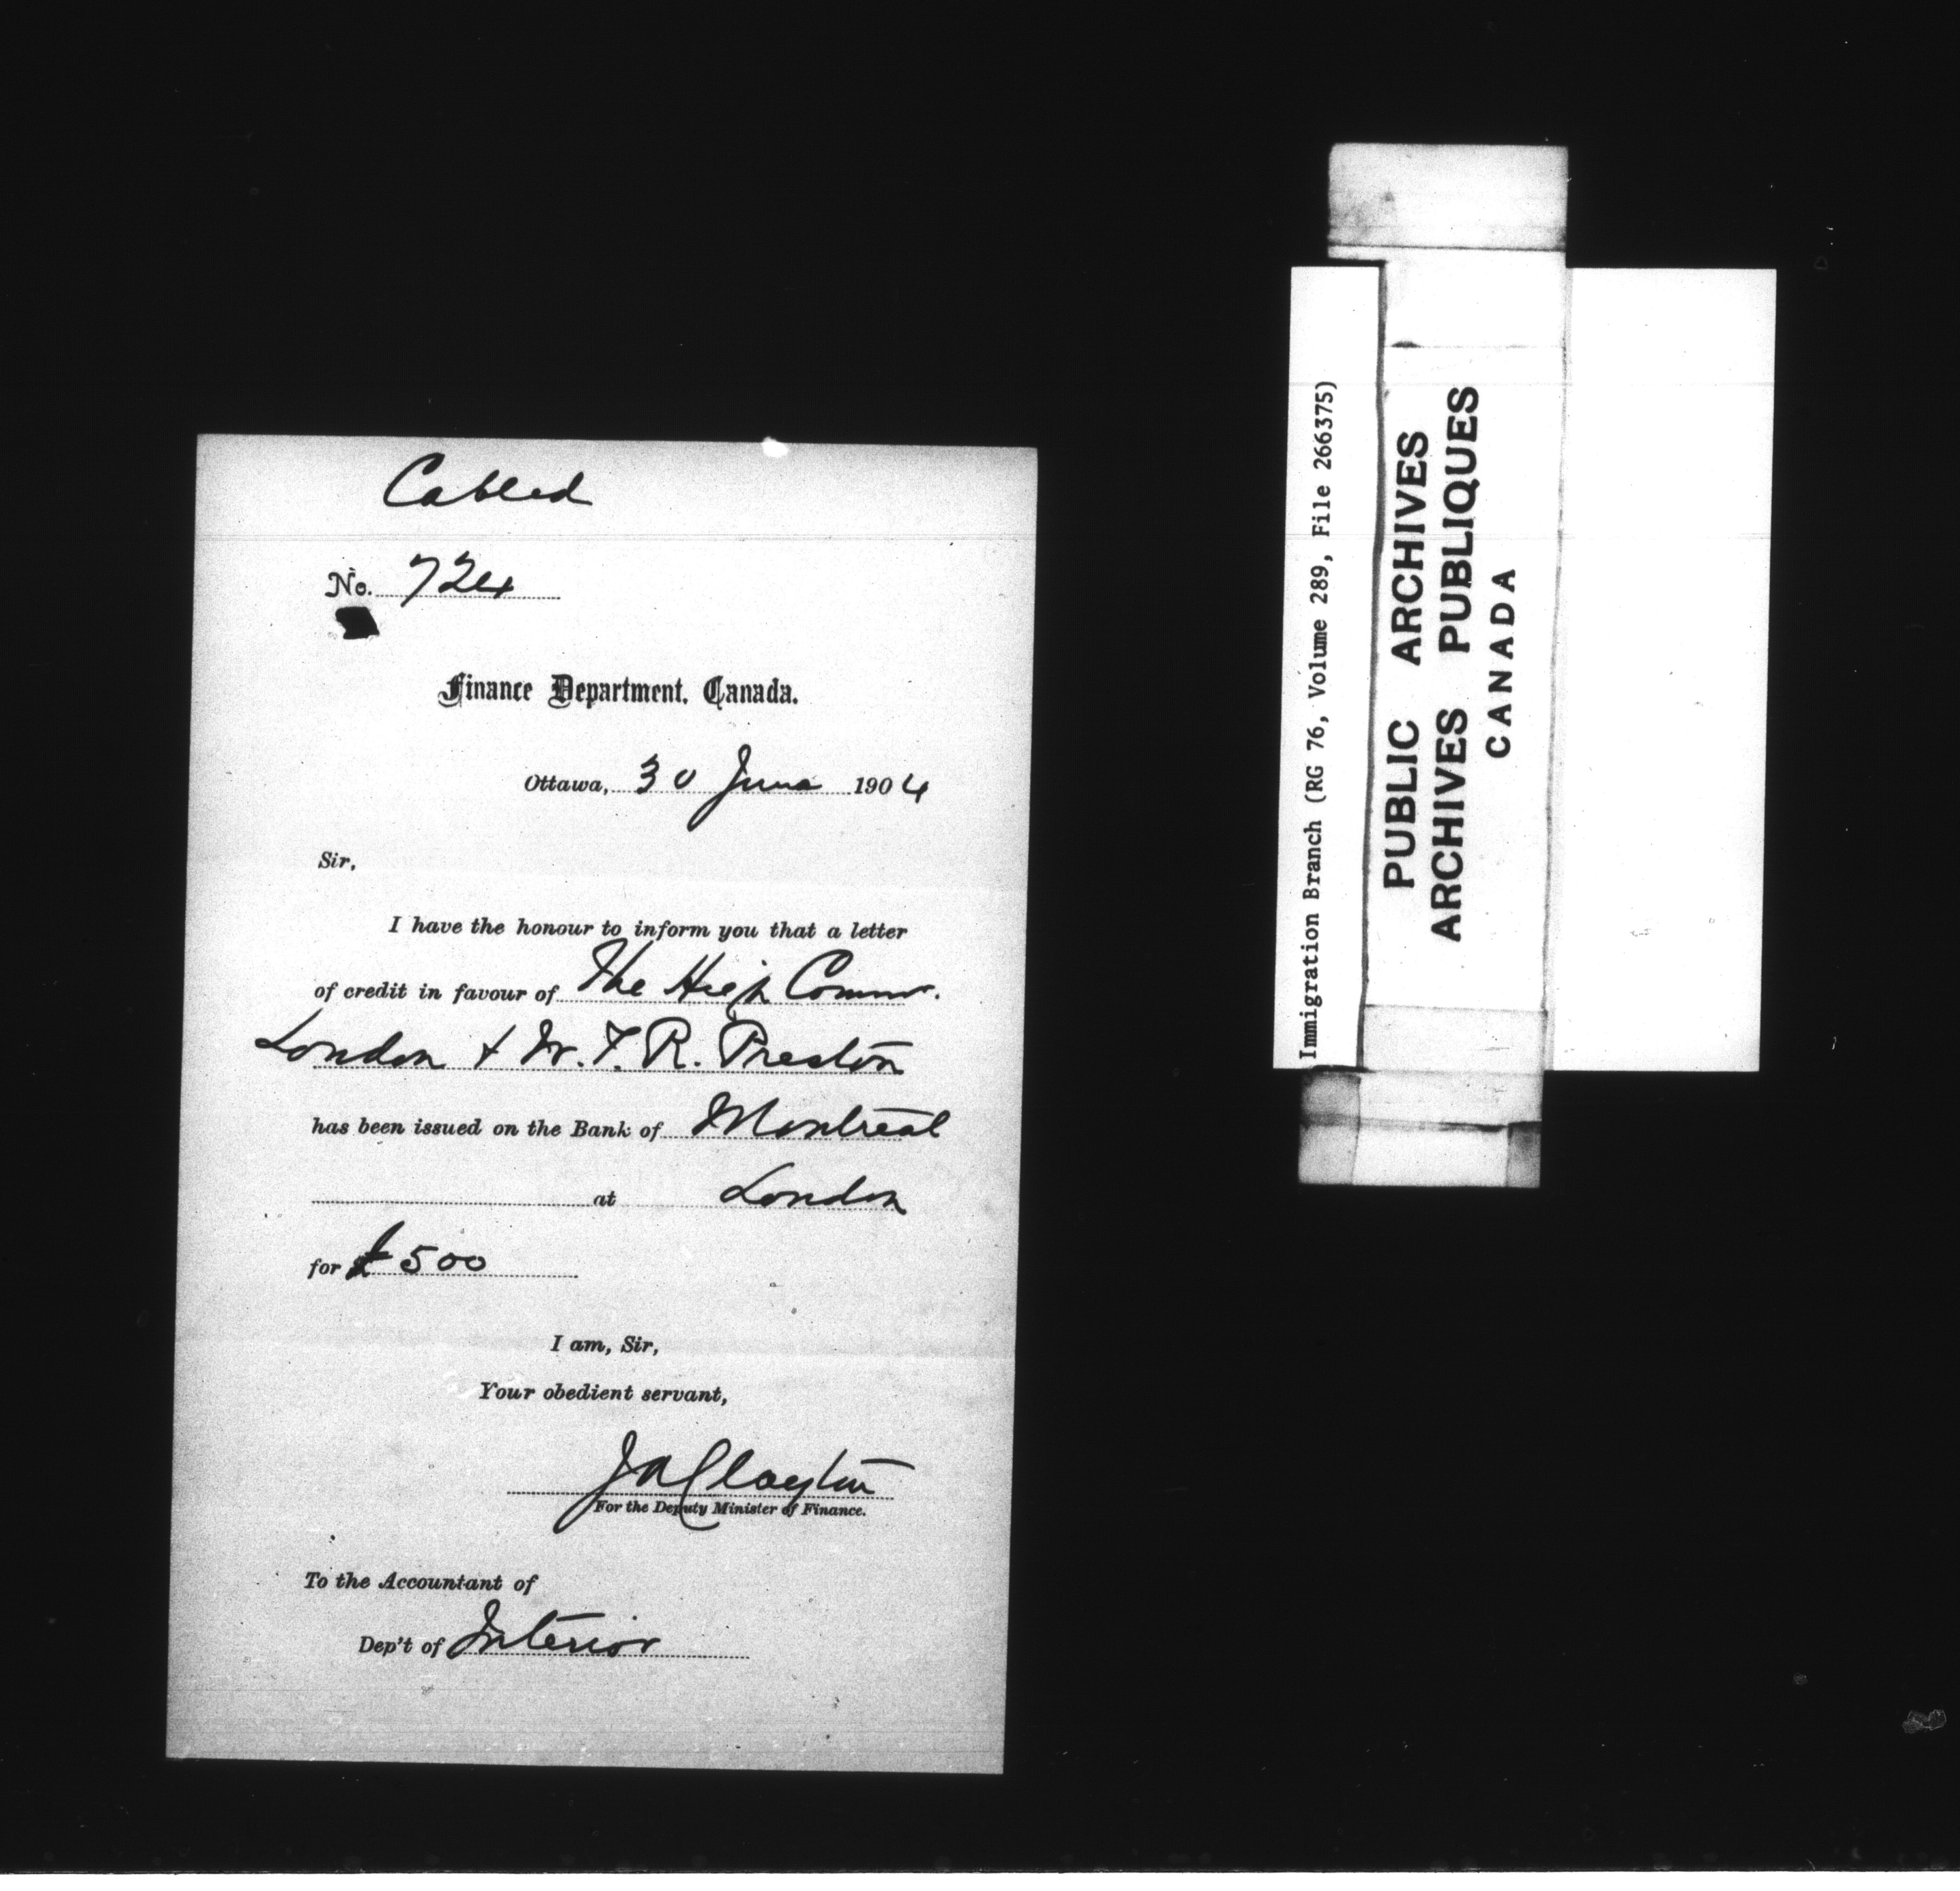 Cabled
No. 724
Finance Department, Canada.
Ottawa, 30 June 1904
Sir,
I have the honour to inform you that a letter
of credit in favour of The High Commr.
London & W. T. R. Preston
has been issued on the Bank of Montreal
at London
for £500
I am, Sir,
Your obedient servant,
J A Clayton
For the Deputy Minister of Finance.
To the Accountant of
Dep't of Interior
Immigration Branch (RG 76, Volume 289, File 266375)
PUBLIC ARCHIVES
ARCHIVES PUBLIQUES
CANADA